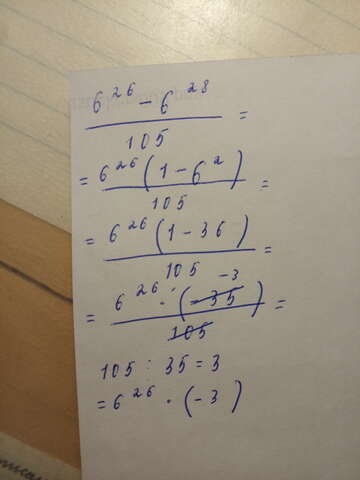 6²⁶ - 6²⁸
105 =
= 6²⁶ (1 - 6²)
105 =
= 6²⁶ (1 - 36)
105 =
-3
= 6²⁶ · (-35)
105 =
105 : 35 = 3
= 6²⁶ · (-3)